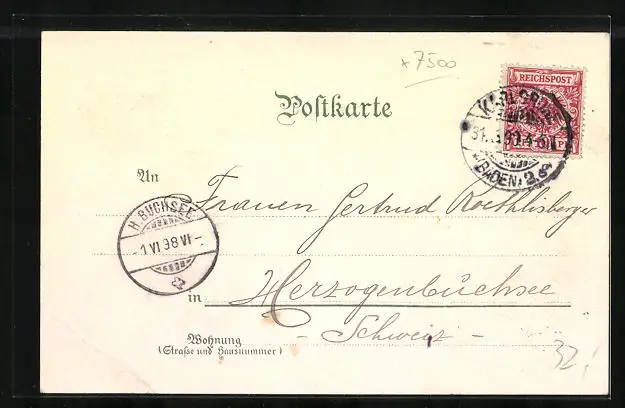 x7500
Postkarte
REICHSPOST
KARLSRUHE
(BADEN) 2.
An Frauen Gertrud Roethlisberger
H. BUCHSEE
-1 VI 98 VI-
in Herzogenbuchsee
- Schweiz -
Wohnung
(Straße und Hausnummer)
32